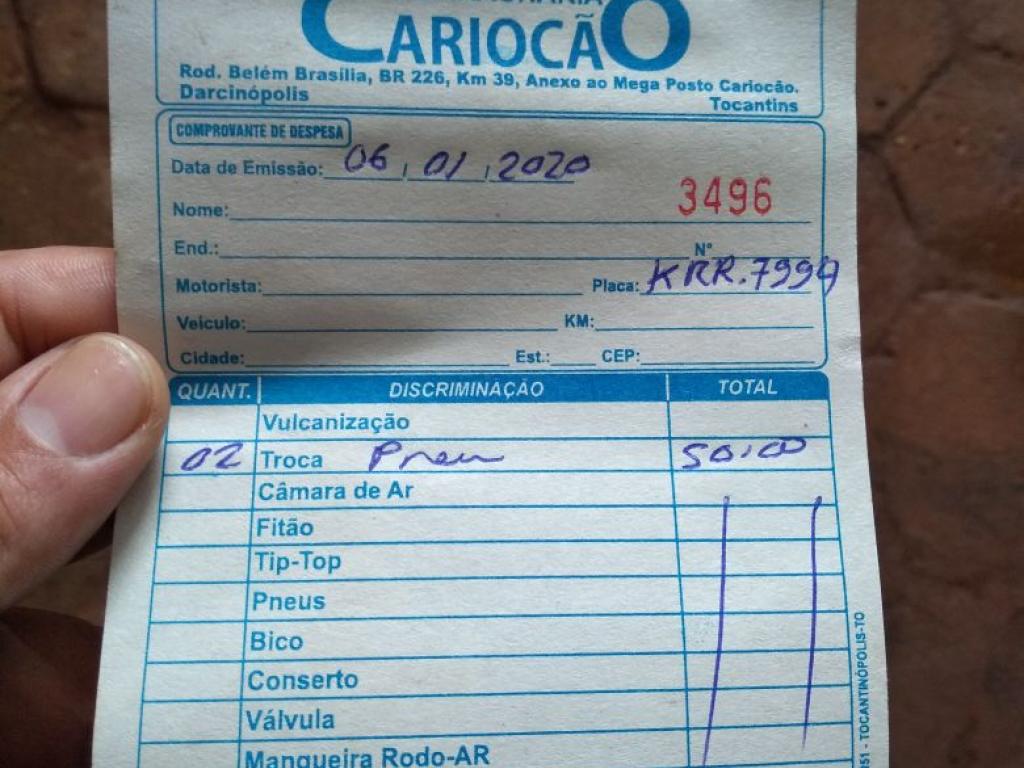 CARIOCÃO
Rod. Belém Brasília, BR 226, Km 39, Anexo ao Mega Posto Cariocão.
Darcinópolis Tocantins
COMPROVANTE DE DESPESA
Data de Emissão: 06 / 01 / 2020
Nome: 3496
End.: Nº
Motorista: Placa: KRR.7999
Veículo: KM:
Cidade: Est.: CEP:
QUANT. DISCRIMINAÇÃO TOTAL
Vulcanização
02 Troca Pneu 50,00
Câmara de Ar
Fitão
Tip-Top
Pneus
Bico
Conserto
Válvula
Mangueira Rodo-AR
51 - TOCANTINÓPOLIS-TO